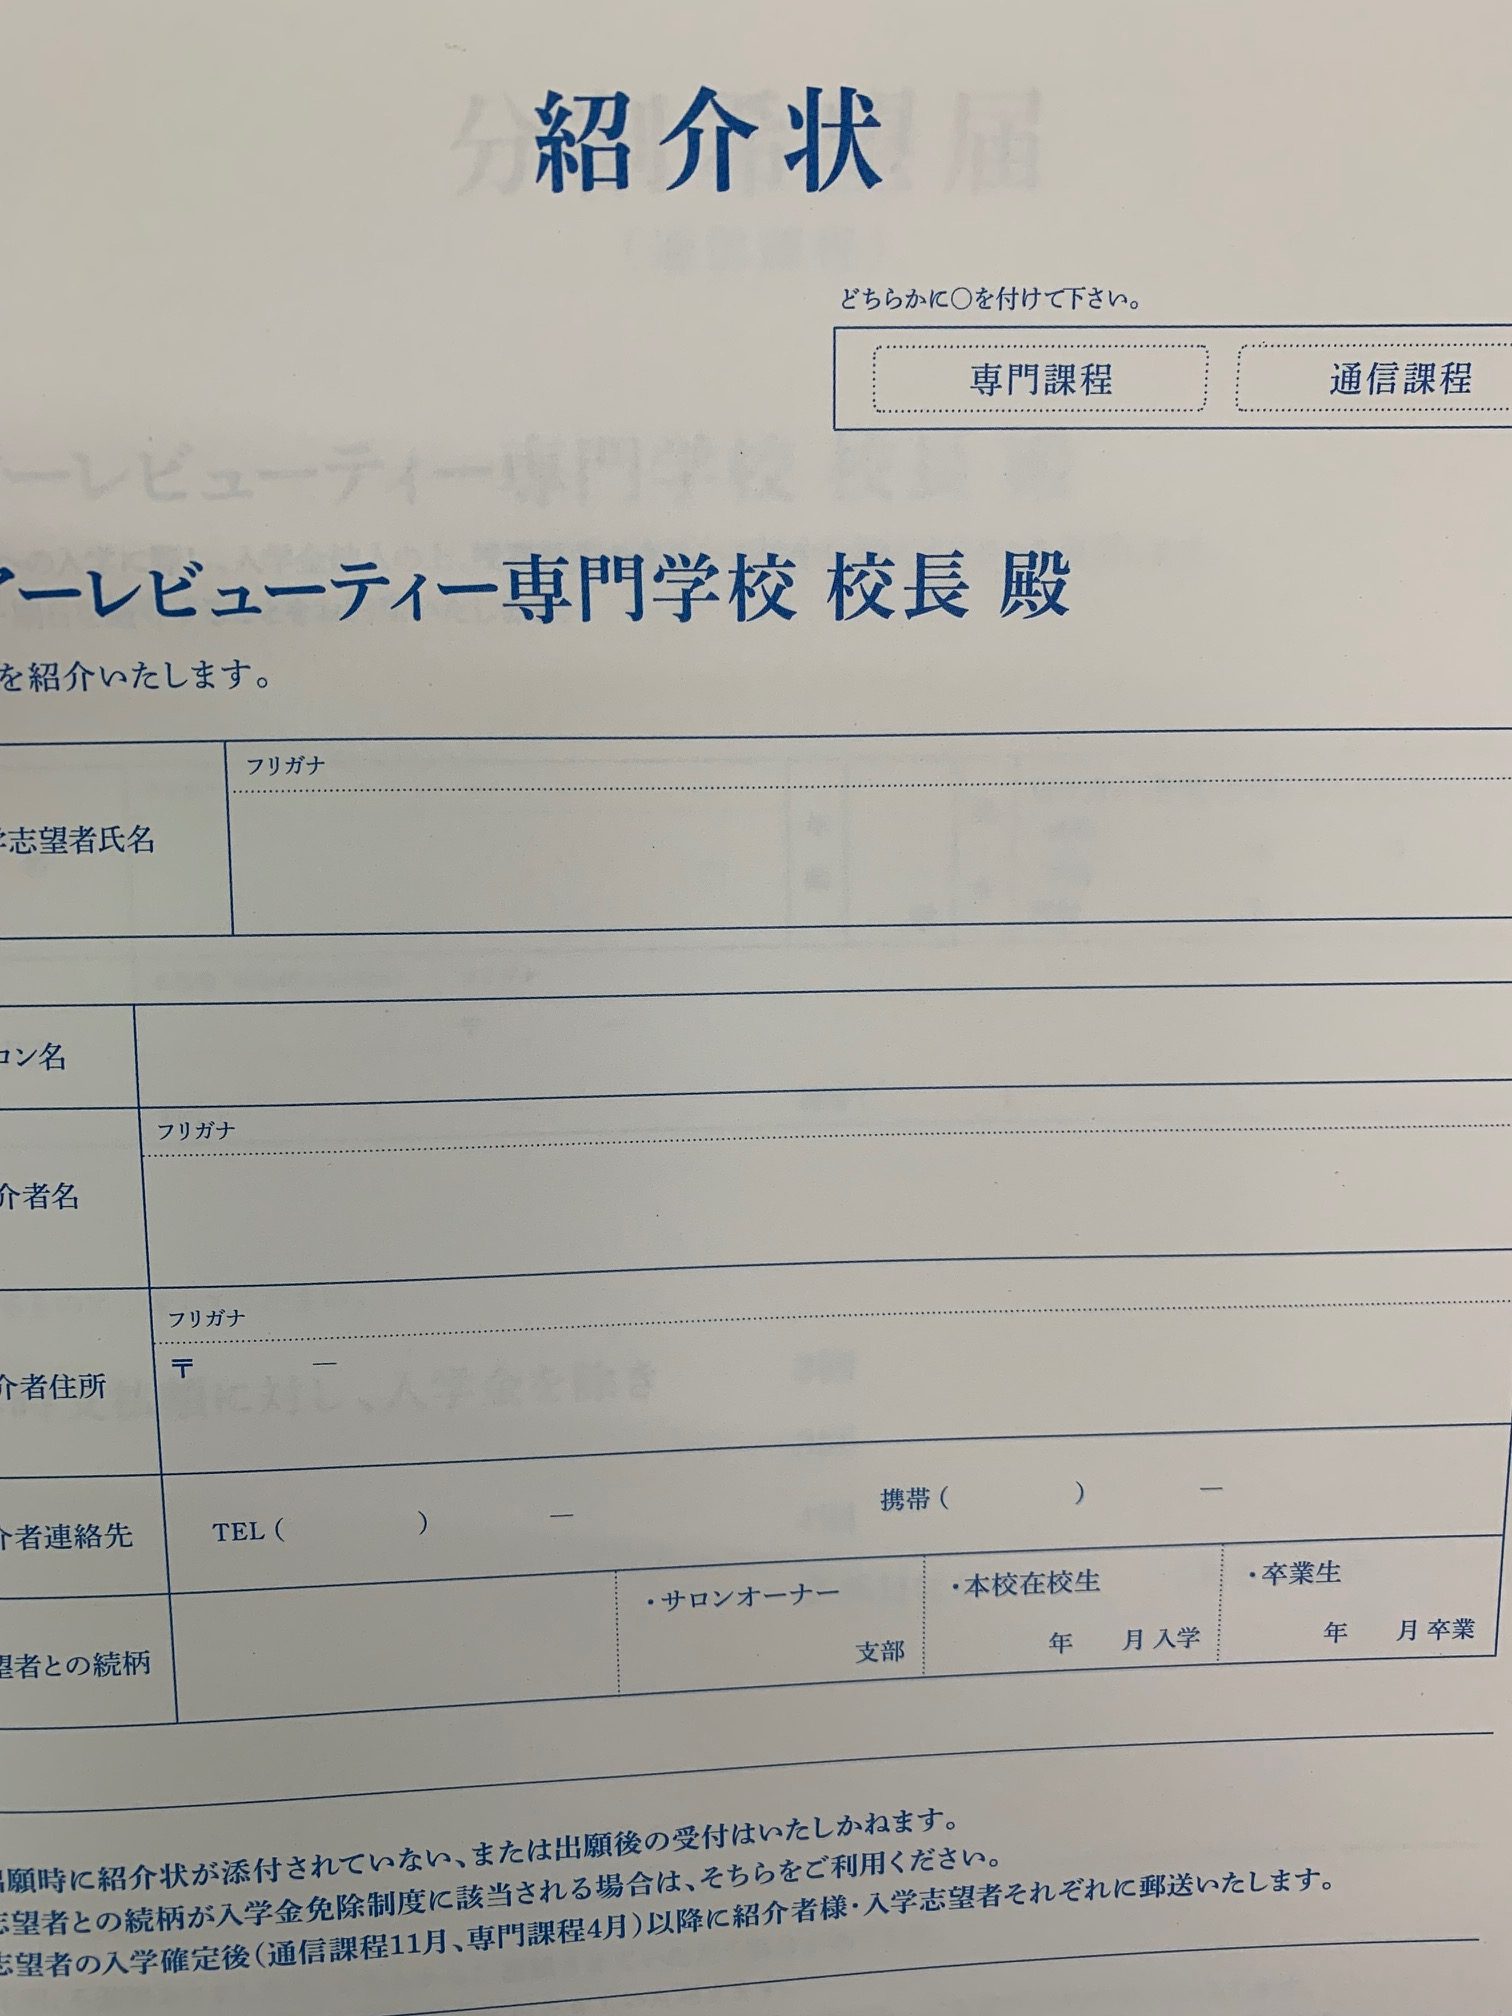 紹介状
どちらかに〇を付けて下さい。
専門課程 通信課程
アーレビューティー専門学校 校長 殿
を紹介いたします。
フリガナ
学志望者氏名
ロン名
フリガナ
介者名
フリガナ
〒 ー
介者住所
介者連絡先 TEL( ) ー 携帯( ) ー
望者との続柄 ・サロンオーナー 支部 ・本校在校生 年 月 入学 ・卒業生 年 月 卒業
出願時に紹介状が添付されていない、または出願後の受付はいたしかねます。
志望者との続柄が入学金免除制度に該当される場合は、そちらをご利用ください。
志望者の入学確定後(通信課程11月、専門課程4月)以降に紹介者様・入学志望者それぞれに郵送いたします。